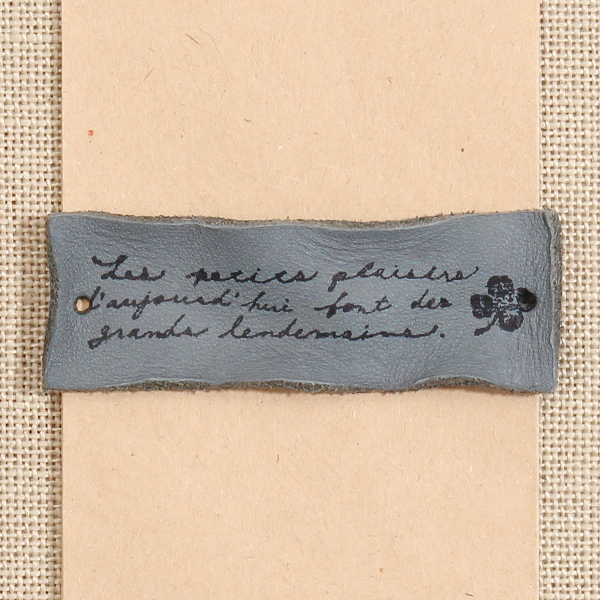 Les petits plaisirs
d'aujourd'hui font des
grands lendemains.